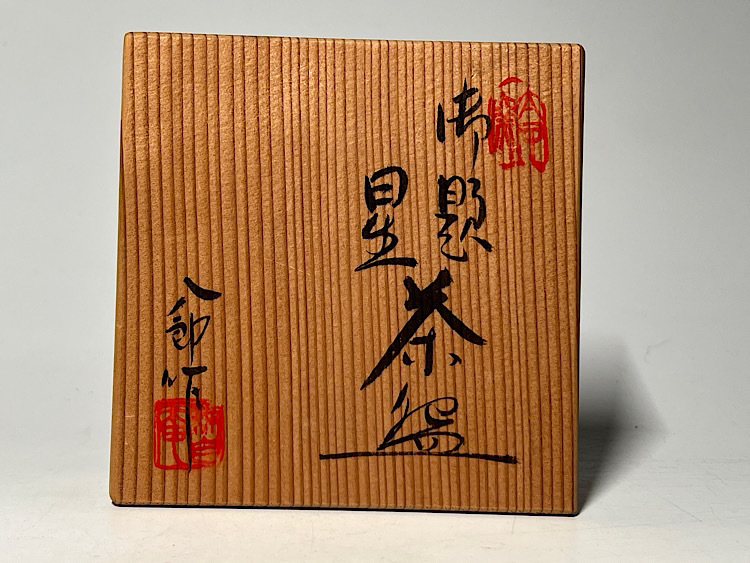 御題
星
茶盌
八郎作